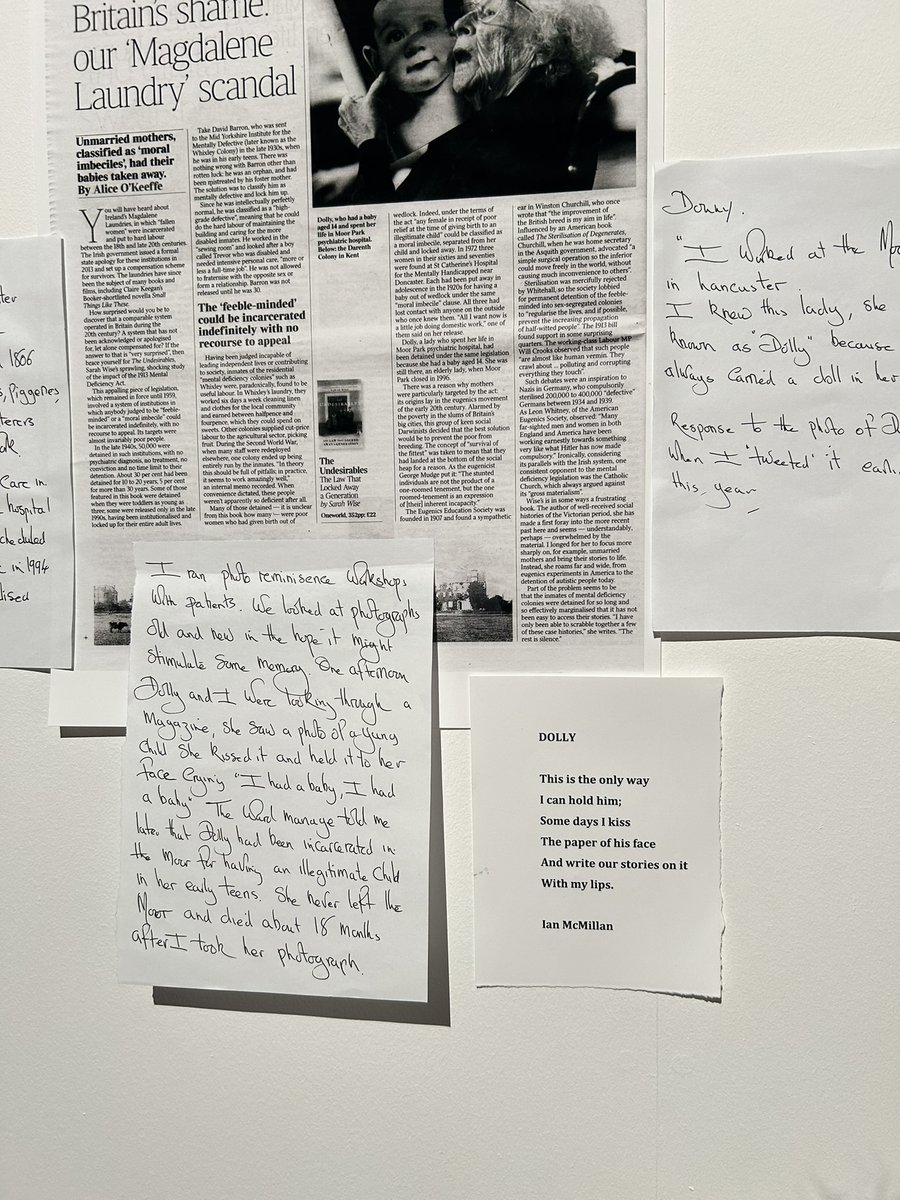 Britain's shame:
our ‘Magdalene
Laundry’ scandal
Unmarried mothers,
classified as ‘moral
imbeciles’, had their
babies taken away.
By Alice O'Keeffe
You will have heard about
Ireland's Magdalene
Laundries, in which “fallen
women” were incarcerated
and put to hard labour
between the 18th and late 20th centuries.
The Irish government issued a formal
state apology for these institutions in
2013 and set up a compensation scheme
for survivors. The laundries have since
been the subject of many books and
films, including Claire Keegan's
Booker-shortlisted novella Small
Things Like These.
How surprised would you be to
discover that a comparable system
operated in Britain during the
20th century? A system that has not
been acknowledged or apologised
for, let alone compensated for? If the
answer to that is “very surprised”, then
brace yourself for The Undesirables,
Sarah Wise's sprawling, shocking study
of the impact of the 1913 Mental
Deficiency Act.
This appalling piece of legislation,
which remained in force until 1959,
involved a system of institutions in
which anybody judged to be “feeble-
minded” or a “moral imbecile” could
be incarcerated indefinitely, with no
recourse to appeal. Its targets were
almost invariably poor people.
In the late 1940s, 50,000 were
detained in such institutions, with no
psychiatric diagnosis, no treatment, no
conviction and no time limit to their
detention. About 30 per cent had been
detained for 10 to 20 years; 5 per cent
for more than 30 years. Some of those
featured in this book were detained
when they were toddlers as young as
three; some were released only in the late
1990s, having been institutionalised and
locked up for their entire adult lives.
Take David Barron, who was sent
to the Mid Yorkshire Institute for the
Mentally Defective (later known as the
Whixley Colony) in the late 1930s, when
he was in his early teens. There was
nothing wrong with Barron other than
rotten luck: he was an orphan, and had
been mistreated by his foster mother.
The solution was to classify him as
mentally defective and lock him up.
Since he was intellectually perfectly
normal, he was classified as a “high-
grade defective”, meaning that he could
do the hard labour of maintaining the
building and caring for the more
disabled inmates. He worked in the
“sewing room” and looked after a boy
called Trevor who was disabled and
needed intensive personal care, “more or
less a full-time job”. He was not allowed
to fraternise with the opposite sex or
form a relationship. Barron was not
released until he was 30.
The ‘feeble-minded’
could be incarcerated
indefinitely with no
recourse to appeal
Having been judged incapable of
leading independent lives or contributing
to society, inmates of the residential
“mental deficiency colonies” such as
Whixley were, paradoxically, found to be
useful labour. In Whixley's laundry, they
worked six days a week cleaning linen
and clothes for the local community
and earned between halfpence and
fourpence, which they could spend on
sweets. Other colonies supplied cut-price
labour to the agricultural sector, picking
fruit. During the Second World War,
when many staff were redeployed
elsewhere, one colony ended up being
entirely run by the inmates. “In theory
this should be full of pitfalls; in practice,
it seems to work amazingly well,”
an internal memo recorded. When
convenience dictated, these people
weren't apparently so deficient after all.
Many of those detained — it is unclear
from this book how many — were poor
women who had given birth out of
Dolly, who had a baby
aged 14 and spent her
life in Moor Park
psychiatric hospital.
Below: the Darenth
Colony in Kent
UNDESIRABLES
The
Undesirables
The Law That
Locked Away
a Generation
by Sarah Wise
Oneworld, 352pp; £22
wedlock. Indeed, under the terms of
the act “any female in receipt of poor
relief at the time of giving birth to an
illegitimate child” could be classified as
a moral imbecile, separated from her
child and locked away. In 1972 three
women in their sixties and seventies
were found at St Catherine's Hospital
for the Mentally Handicapped near
Doncaster. Each had been put away in
adolescence in the 1920s for having a
baby out of wedlock under the same
“moral imbecile” clause. All three had
lost contact with anyone on the outside
who once knew them. “All I want now is
a little job doing domestic work,” one of
them said on her release.
Dolly, a lady who spent her life in
Moor Park psychiatric hospital, had
been detained under the same legislation
because she had a baby aged 14. She was
still there, an elderly lady, when Moor
Park closed in 1996.
There was a reason why mothers
were particularly targeted by the act:
its origins lay in the eugenics movement
of the early 20th century. Alarmed by
the poverty in the slums of Britain's
big cities, this group of keen social
Darwinists decided that the best solution
would be to prevent the poor from
breeding. The concept of “survival of
the fittest” was taken to mean that they
had landed at the bottom of the social
heap for a reason. As the eugenicist
George Mudge put it: “The stunted
individuals are not the product of a
one-roomed tenement, but the one
roomed-tenement is an expression
of [their] inherent incapacity”.
The Eugenics Education Society was
founded in 1907 and found a sympathetic
ear in Winston Churchill, who once
wrote that “the improvement of
the British breed is my aim in life”.
Influenced by an American book
called The Sterilisation of Degenerates,
Churchill, when he was home secretary
in the Asquith government, advocated “a
simple surgical operation so the inferior
could move freely in the world, without
causing much inconvenience to others”.
Sterilisation was mercifully rejected
by Whitehall, so the society lobbied
for permanent detention of the feeble-
minded into sex-segregated colonies
to “regularise the lives, and if possible,
prevent the increasing propagation
of half-witted people”. The 1913 bill
found support in some surprising
quarters. The working-class Labour MP
Will Crooks observed that such people
“are almost like human vermin. They
crawl about ... polluting and corrupting
everything they touch”.
Such debates were an inspiration to
Nazis in Germany, who compulsorily
sterilised 200,000 to 400,000 “defective”
Germans between 1934 and 1939.
As Leon Whitney, of the American
Eugenics Society, observed: “Many
far-sighted men and women in both
England and America have been
working earnestly towards something
very like what Hitler has now made
compulsory.” Ironically, considering
its parallels with the Irish system, one
consistent opponent to the mental
deficiency legislation was the Catholic
Church, which always argued against
its “gross materialism”.
Wise's is in some ways a frustrating
book. The author of well-received social
histories of the Victorian period, she has
made a first foray into the more recent
past here and seems — understandably,
perhaps — overwhelmed by the
material. I longed for her to focus more
sharply on, for example, unmarried
mothers and being their stories to life.
Instead, she roams far and wide, from
eugenics experiments in America to the
detention of autistic people today.
Part of the problem seems to be
that the inmates of mental deficiency
colonies were detained for so long and
so effectively marginalised that it has not
been easy to access their stories. “I have
only been able to scrabble together a few
of these case histories,” she writes. “The
rest is silence.”
1806
Piggeries,
Care in
hospital
in 1994
Donny.
“I worked at the Moo
in Lancaster.
I knew this lady, she
known as “Dolly” because
always carried a doll in her
Response to the photo of D
When I ‘tweeted’ it earli
this year
I ran photo reminisence workshops
with patients. We looked at photographs
old and new in the hope it might
stimulate some memory. One afternoon
Dolly and I were looking through a
Magazine, she saw a photo of a young
child She kissed it and held it to her
face Crying “I had a baby, I had
a baby” The Ward manage told me
later that Dolly had been incarcerated in
the Moor for having an illegitimate Child
in her early teens. She never left the
Moor and died about 18 months
after I took her photograph.
DOLLY
This is the only way
I can hold him;
Some days I kiss
The paper of his face
And write our stories on it
With my lips.
Ian McMillan